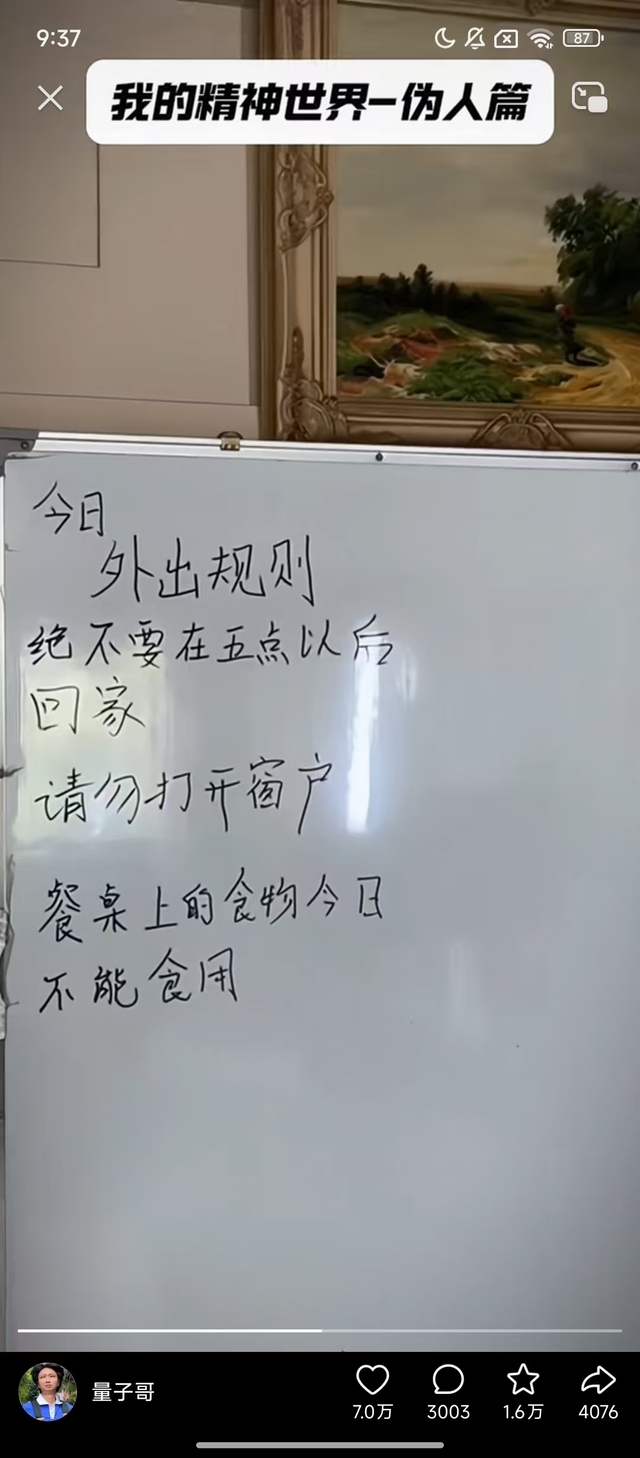 9:37
87
我的精神世界-伪人篇
今日
外出规则
绝不要在五点以后
回家
请勿打开窗户
餐桌上的食物今日
不能食用
量子哥
7.0万
3003
1.6万
4076